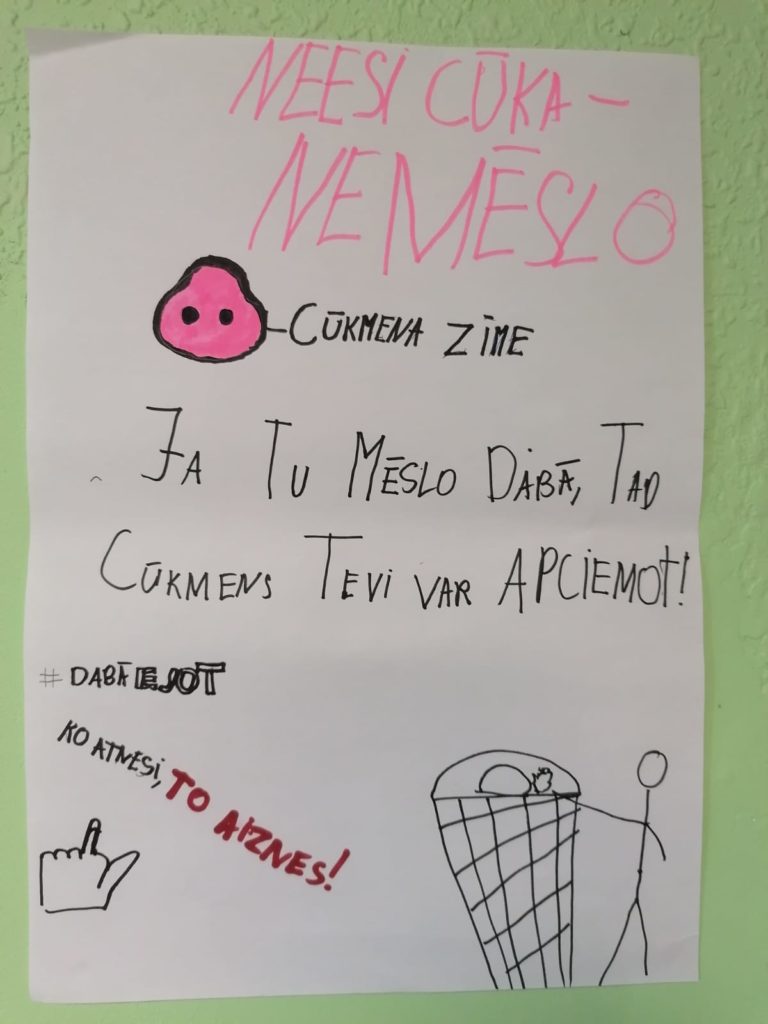 NEESI CŪKA –
NEMĒSLO
– CŪKMENA ZĪME
JA TU MĒSLO DABĀ, TAD
CŪKMENS TEVI VAR APCIEMOT!
# DABĀ ESOT
KO ATNESI, TO AIZNES!